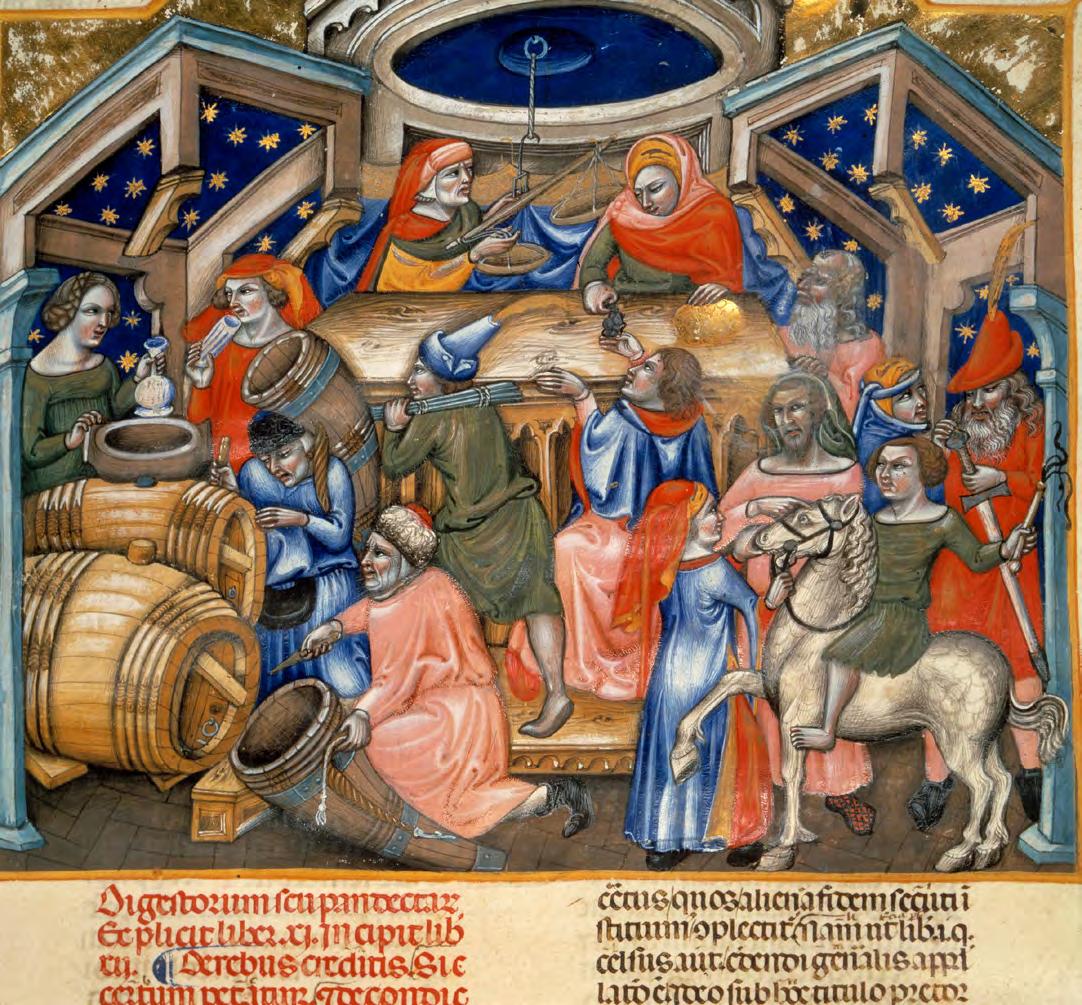 Digestorum seu pandectar.
Explicit liber. xi. Incipit lib
xii. ¶ De rebus creditis. Si c
certum petatur. ⁊ de condic
c̄ctus quos alienā fidem secuti ī
stituim᷒ ꝯplectit᷑. nam ut lib. i. q.
celsus. ait. c̄dendi gn̄alis appl
latō ē. ideo sub hoc titulo pretor